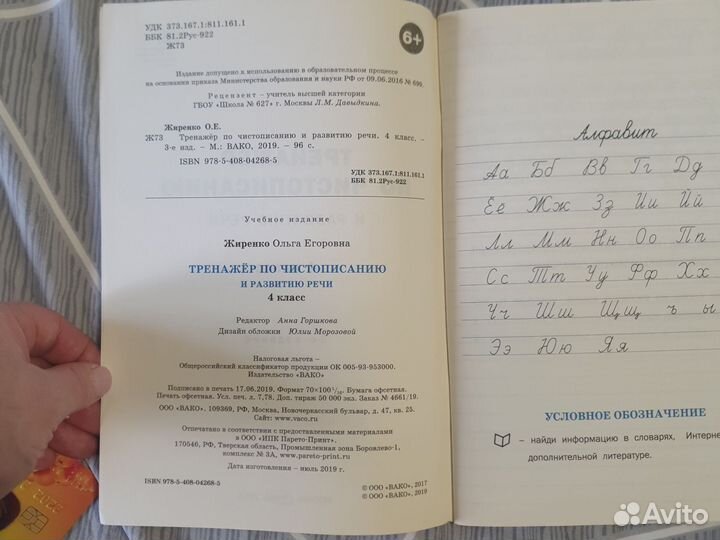 УДК 373.167.1:811.161.1
ББК 81.2Рус-922
Ж73
6+
Издание допущено к использованию в образовательном процессе
на основании приказа Министерства образования и науки РФ от 09.06.2016 № 699.
Рецензент – учитель высшей категории
ГБОУ «Школа № 627» г. Москвы Л.М. Давыдкина.
Жиренко О.Е.
Ж73 Тренажёр по чистописанию и развитию речи. 4 класс. –
3-е изд. – М.: ВАКО, 2019. – 96 с.
ISBN 978-5-408-04268-5
УДК 373.167.1:811.161.1
ББК 81.2Рус-922
Учебное издание
Жиренко Ольга Егоровна
ТРЕНАЖЁР ПО ЧИСТОПИСАНИЮ
И РАЗВИТИЮ РЕЧИ
4 класс
Редактор Анна Горшкова
Дизайн обложки Юлии Морозовой
Налоговая льгота –
Общероссийский классификатор продукции ОК 005-93-953000.
Издательство «ВАКО»
Подписано в печать 17.06.2019. Формат 70×100 1/16. Бумага офсетная.
Печать офсетная. Усл. печ. л. 7,78. Доп. тираж 50 000 экз. Заказ № 4661/19.
ООО «ВАКО». 109369, РФ, Москва, Новочеркасский бульвар, д. 47, кв. 25.
Сайт: www.vaco.ru
Отпечатано в соответствии с предоставленными материалами
в ООО «ИПК Парето-Принт».
170546, РФ, Тверская область, Промышленная зона Боровлево-1,
комплекс № 3А, www.pareto-print.ru
Дата изготовления – июль 2019 г.
ISBN 978-5-408-04268-5
© ООО «ВАКО», 2017
© ООО «ВАКО», 2019
Алфавит
Аа Бб Вв Гг Дд
Ее Жж Зз Ии Йй
Лл Мм Нн Оо Пп
Сс Тт Уу Фф Хх
Чч Шш Щщ ъ ы
Ээ Юю Яя
УСЛОВНОЕ ОБОЗНАЧЕНИЕ
– найди информацию в словарях, Интерне
дополнительной литературе.
Avito